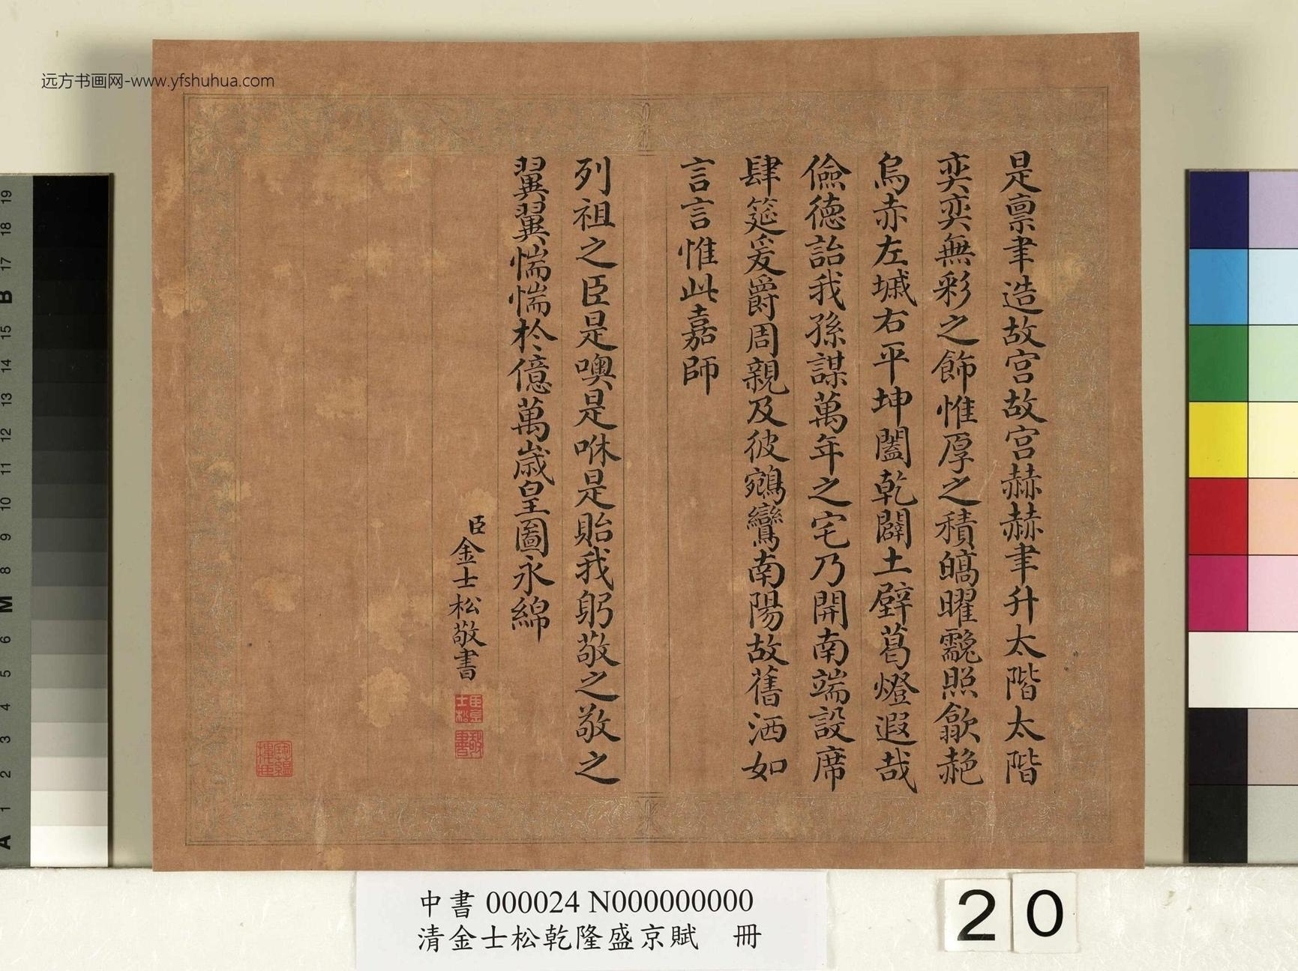 远方书画网-www.yfshuhua.com
是禀聿造故宮故宮赫赫聿升太階太階
奕奕無彩之飾惟厚之積皜曜靉照歙赩
烏赤左墄右平坤闔乾闢土壁葛燈遐哉
儉德詒我孫謀萬年之宅乃開南端設席
肆筵爰爵周親及彼鵷鸞南陽故舊洒如
言言惟此嘉師
列祖之臣是噢是咻是貽我躬敬之敬之
翼翼惴惴於億萬歲皇圖永綿
臣金士松敬書
中書 000024 N000000000
清金士松乾隆盛京賦 冊
20
19
18
17
B
15
14
13
12
11
10
9
8
M
6
5
4
3
2
1
A